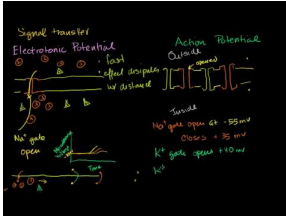 Signal transfer
Electrotonic Potential
fast
effect disipates
w/ distance
Na+ gate
open
Time
Action Potential
Outside
opened
Inside
Na+ gate open at -55 mv
Closes +35 mv
K+ gate opens +40 mv
K+